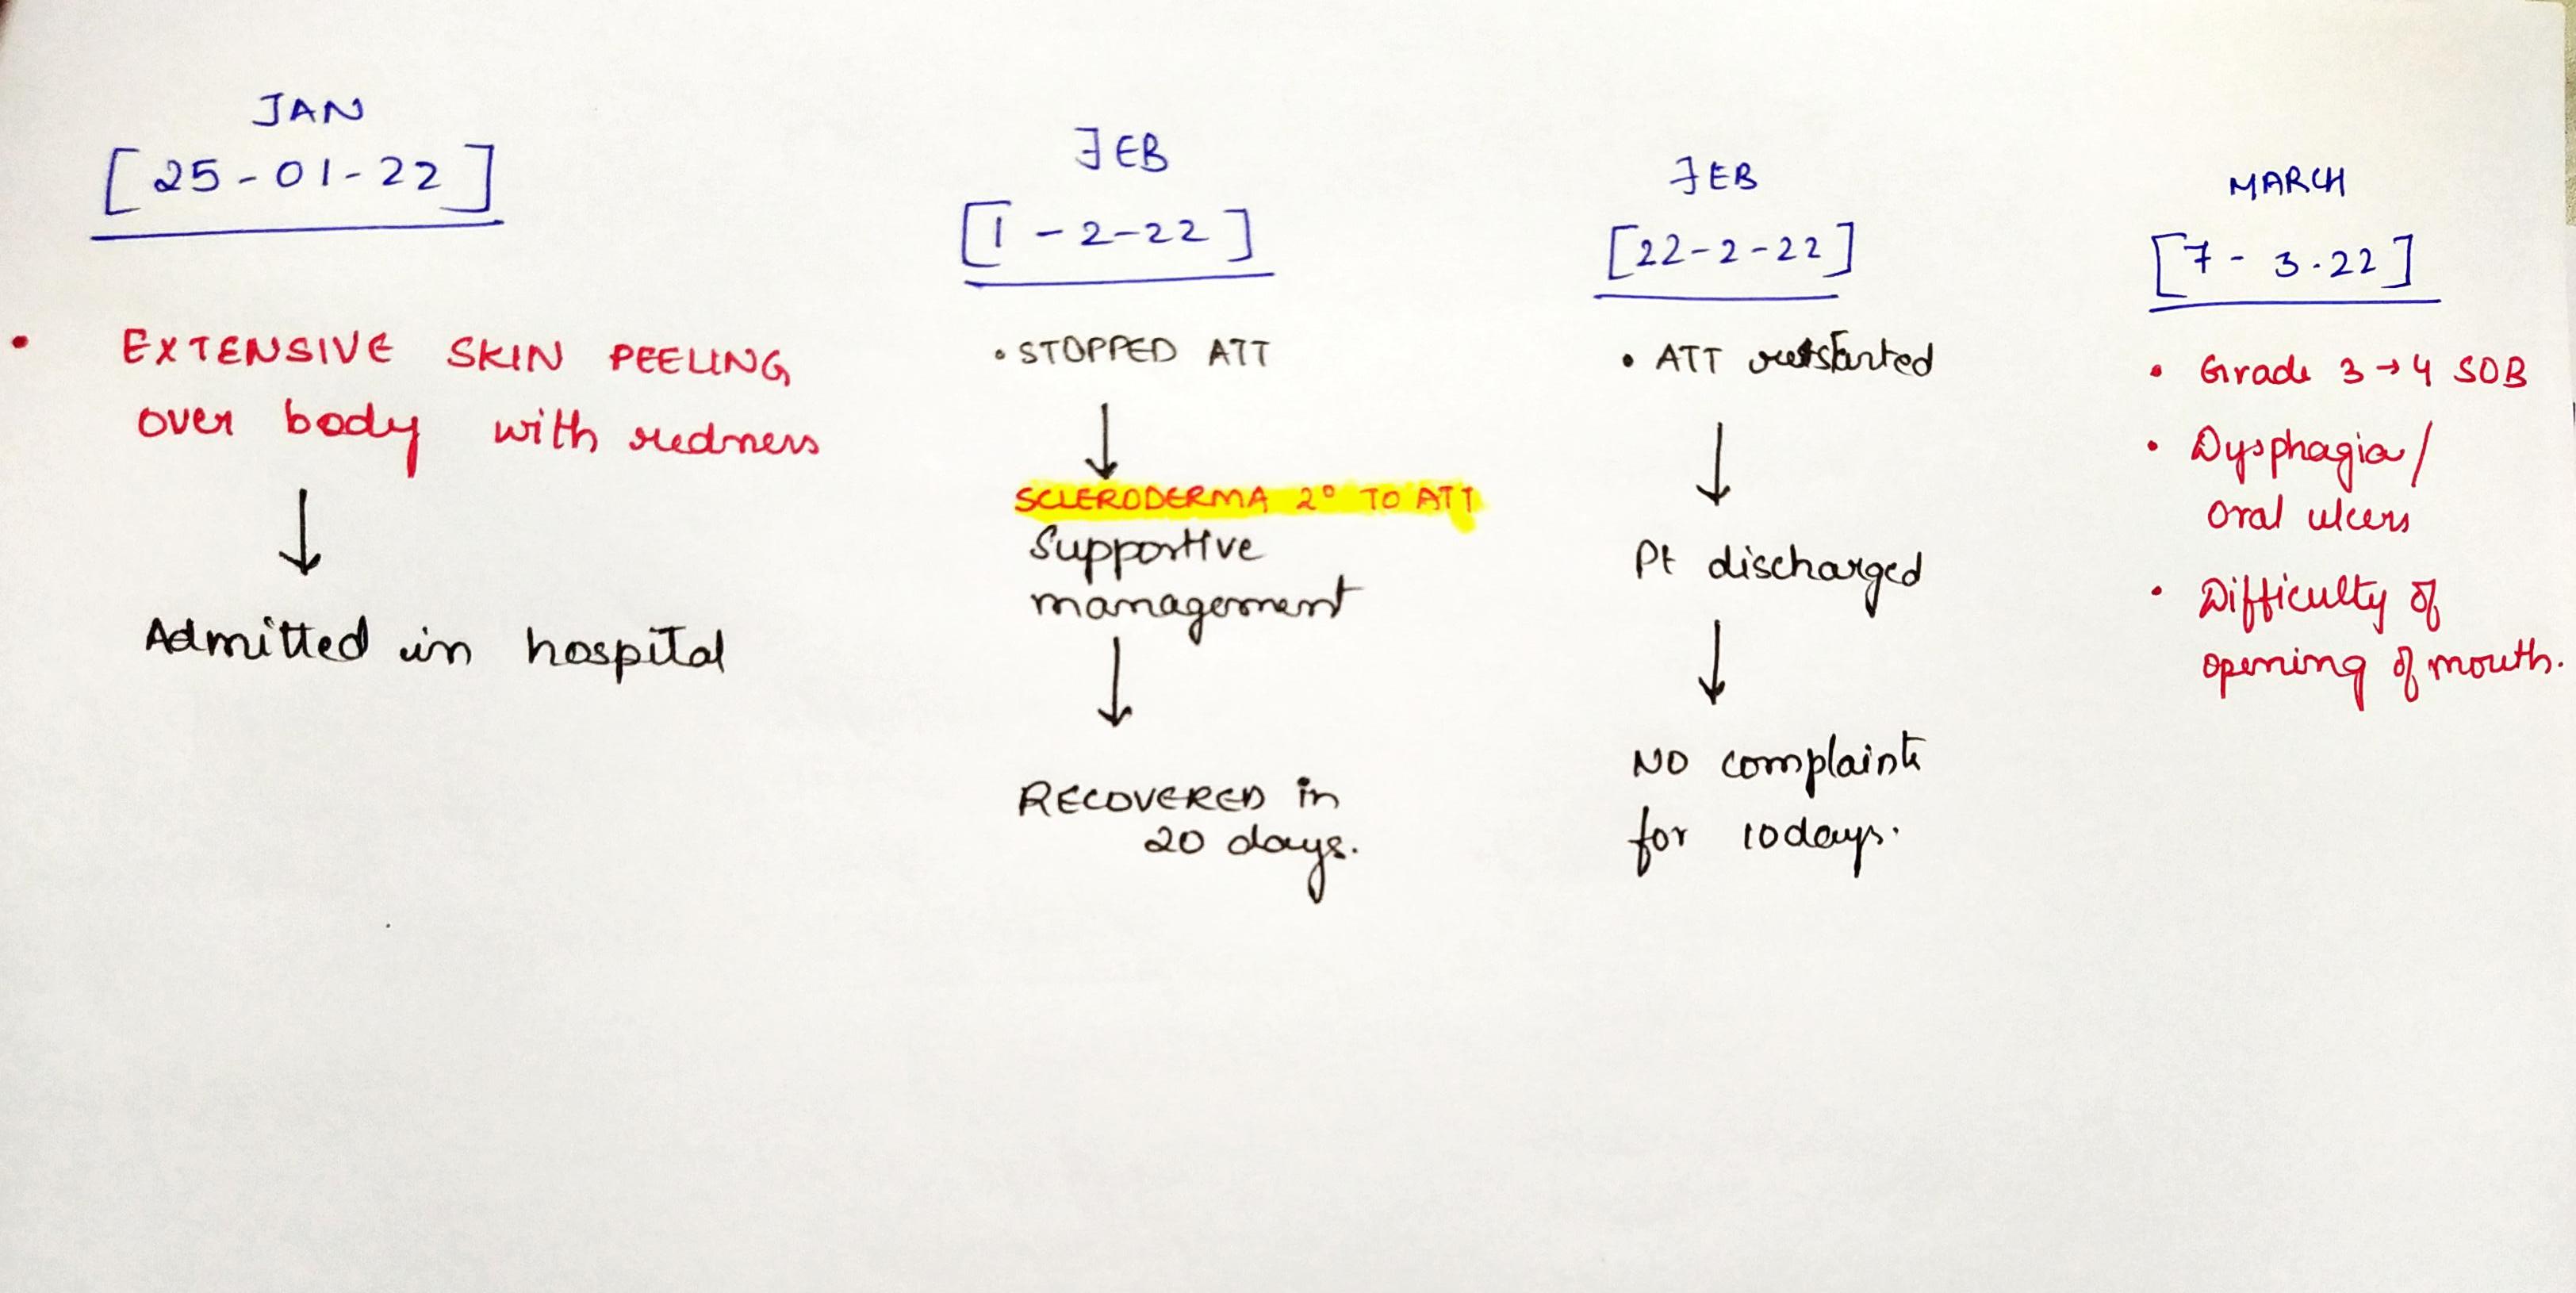 JAN
[25-01-22]
• EXTENSIVE SKIN PEELING
over body with redness
↓
Admitted in hospital
FEB
[1-2-22]
• STOPPED ATT
↓
SCLERODERMA 2° TO ATT
Supportive
management
↓
RECOVERED in
20 days.
FEB
[22-2-22]
• ATT restarted
↓
Pt discharged
↓
NO complaints
for 10 days.
MARCH
[7-3.22]
• Grade 3→4 SOB
• Dysphagia/
Oral ulcers
• Difficulty of
opening of mouth.